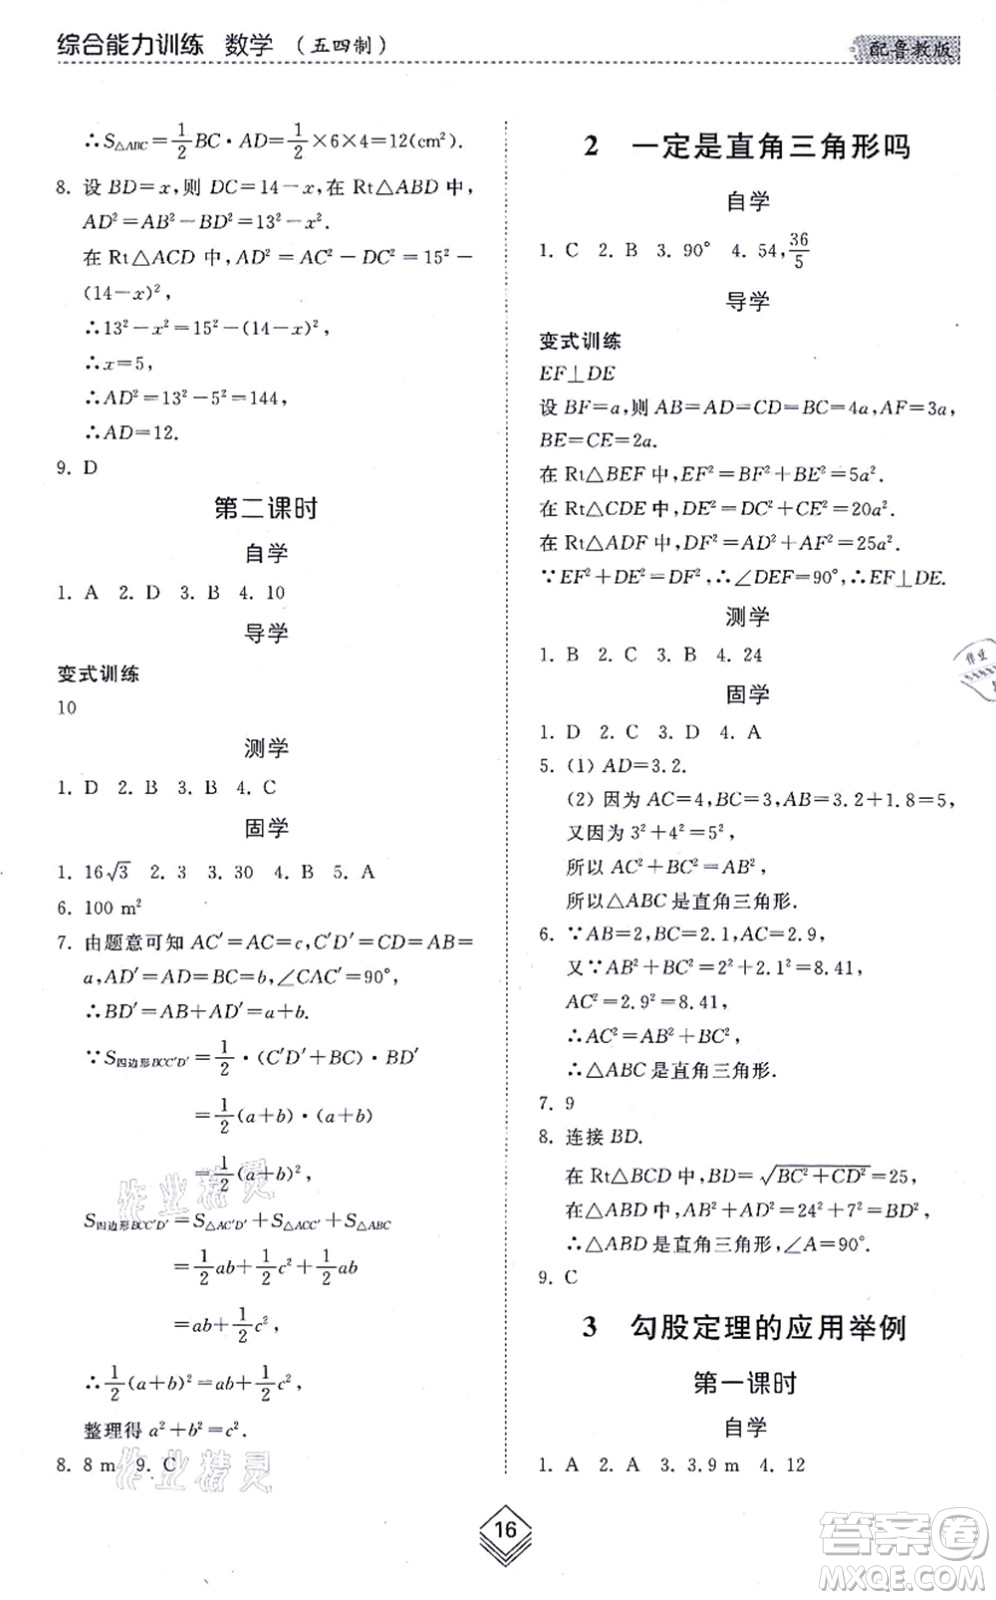 综合能力训练 数学 (五四制)
配鲁教版
∴S△ABC=1/2 BC·AD=1/2×6×4=12(cm²).
8. 设 BD=x,则 DC=14-x,在 Rt△ABD 中,
AD²=AB²-BD²=13²-x².
在 Rt△ACD 中,AD²=AC²-DC²=15²-
(14-x)²,
∴13²-x²=15²-(14-x)²,
∴x=5,
∴AD²=13²-5²=144,
∴AD=12.
9. D
第二课时
自学
1. A 2. D 3. B 4. 10
导学
变式训练
10
测学
1. D 2. B 3. B 4. C
固学
1. 16√3 2. 3 3. 30 4. B 5. A
6. 100 m²
7. 由题意可知 AC′=AC=c,C′D′=CD=AB=
a,AD′=AD=BC=b,∠CAC′=90°,
∴BD′=AB+AD′=a+b.
∵S四边形BCC′D′=1/2·(C′D′+BC)·BD′
=1/2(a+b)·(a+b)
=1/2(a+b)²,
S四边形BCC′D′=S△AC′D′+S△ACC′+S△ABC
=1/2ab+1/2c²+1/2ab
=ab+1/2c²,
∴1/2(a+b)²=ab+1/2c²,
整理得 a²+b²=c².
8. 8 m 9. C
2 一定是直角三角形吗
自学
1. C 2. B 3. 90° 4. 54,36/5
导学
变式训练
EF⊥DE
设 BF=a,则 AB=AD=CD=BC=4a,AF=3a,
BE=CE=2a.
在 Rt△BEF 中,EF²=BF²+BE²=5a².
在 Rt△CDE 中,DE²=DC²+CE²=20a².
在 Rt△ADF 中,DF²=AD²+AF²=25a².
∵EF²+DE²=DF²,∴∠DEF=90°,∴EF⊥DE.
测学
1. B 2. C 3. B 4. 24
固学
1. D 2. C 3. D 4. A
5. (1) AD=3.2.
(2) 因为 AC=4,BC=3,AB=3.2+1.8=5,
又因为 3²+4²=5²,
所以 AC²+BC²=AB²,
所以△ABC 是直角三角形.
6. ∵AB=2,BC=2.1,AC=2.9,
又∵AB²+BC²=2²+2.1²=8.41,
AC²=2.9²=8.41,
∴AC²=AB²+BC²,
∴△ABC 是直角三角形.
7. 9
8. 连接 BD.
在 Rt△BCD 中,BD=√(BC²+CD²)=25,
在△ABD 中,AB²+AD²=24²+7²=BD²,
∴△ABD 是直角三角形,∠A=90°.
9. C
3 勾股定理的应用举例
第一课时
自学
1. A 2. A 3. 3.9 m 4. 12
16
作业精灵
作业精灵
作业
答案卷
MXQE.COM